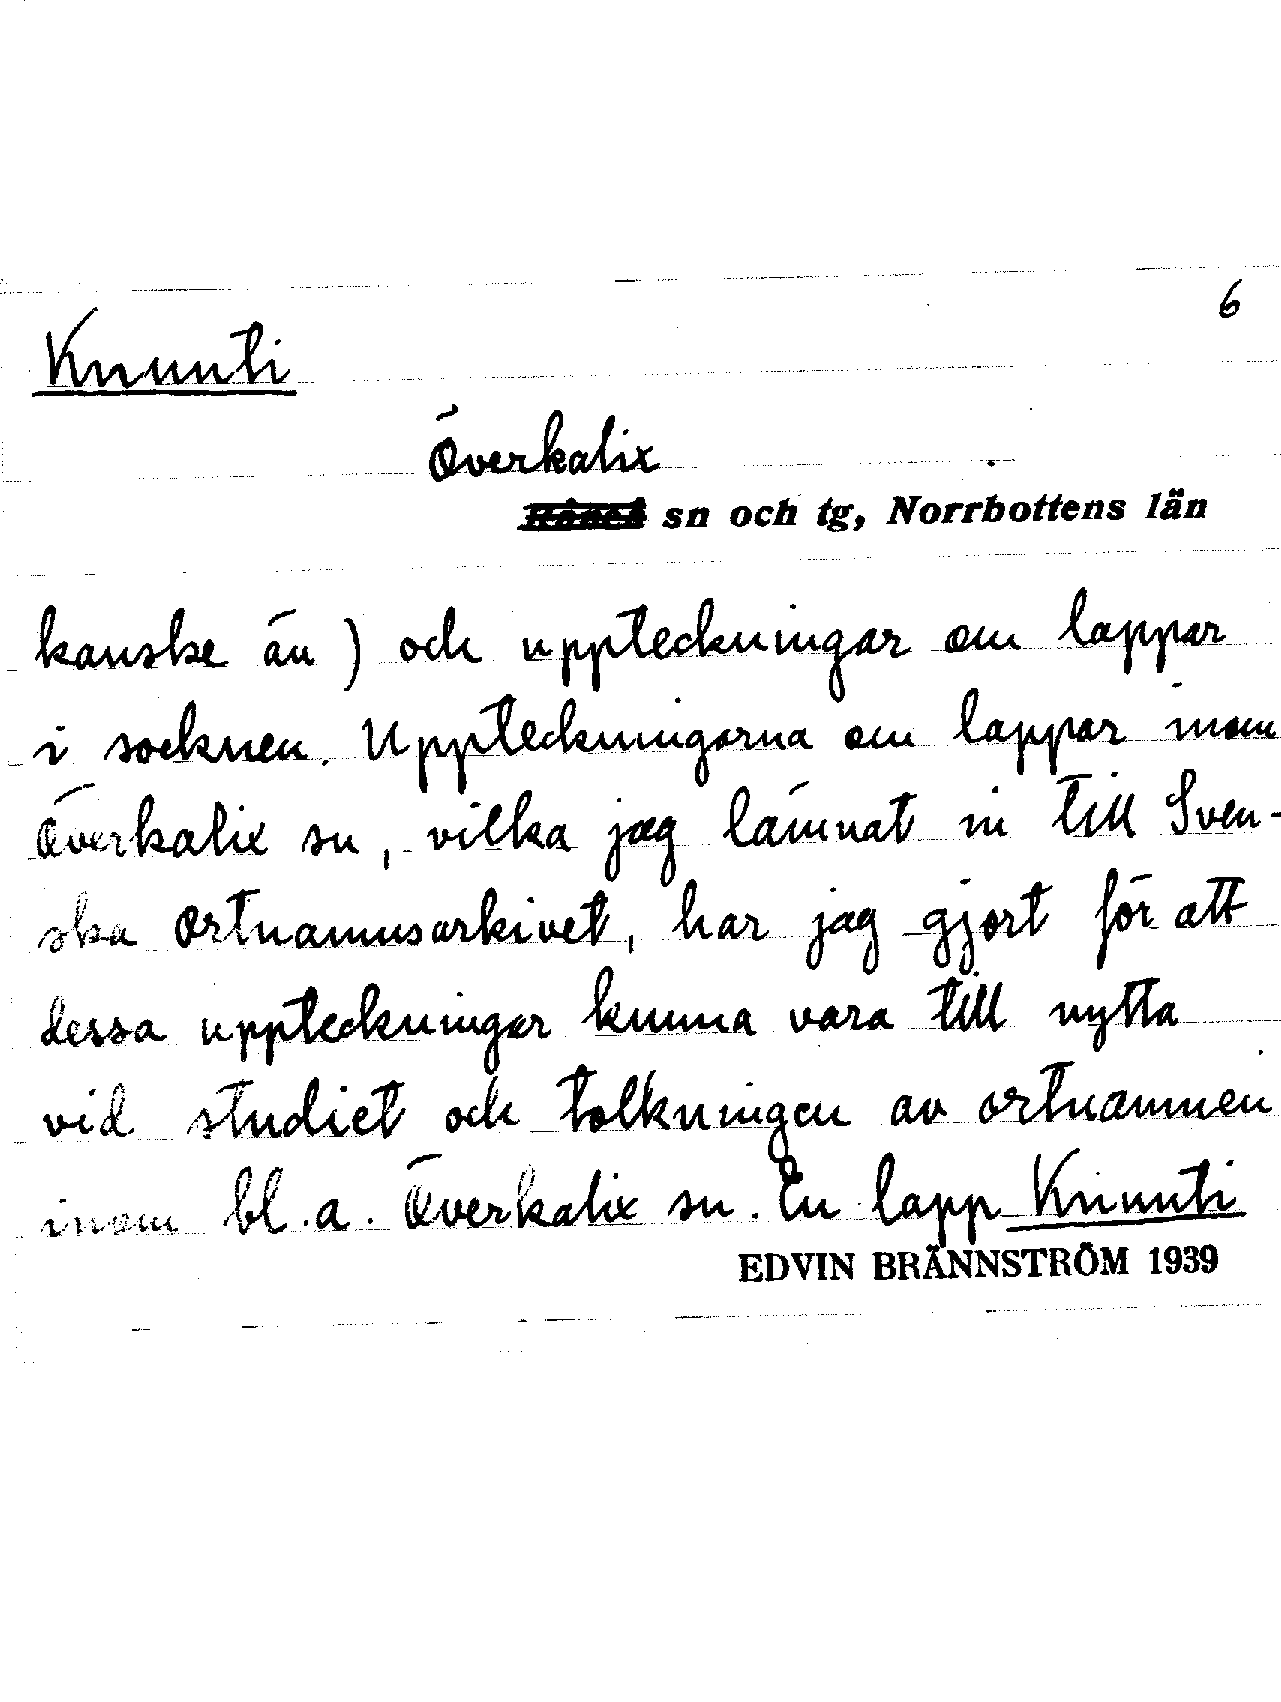 6
Knunti
Överkalix
sn och tg, Norrbottens län
kanske än) och uppteckningar om lappar
i socknen. Uppteckningarna om lappar inom
Överkalix sn, vilka jag lämnat in till Sven-
ska ortnamnsarkivet, har jag gjort för att
dessa uppteckningar kunna vara till nytta
vid studiet och tolkningen av ortnamnen
inom bl.a. Överkalix sn. En lapp Knunti
EDVIN BRÄNNSTRÖM 1939